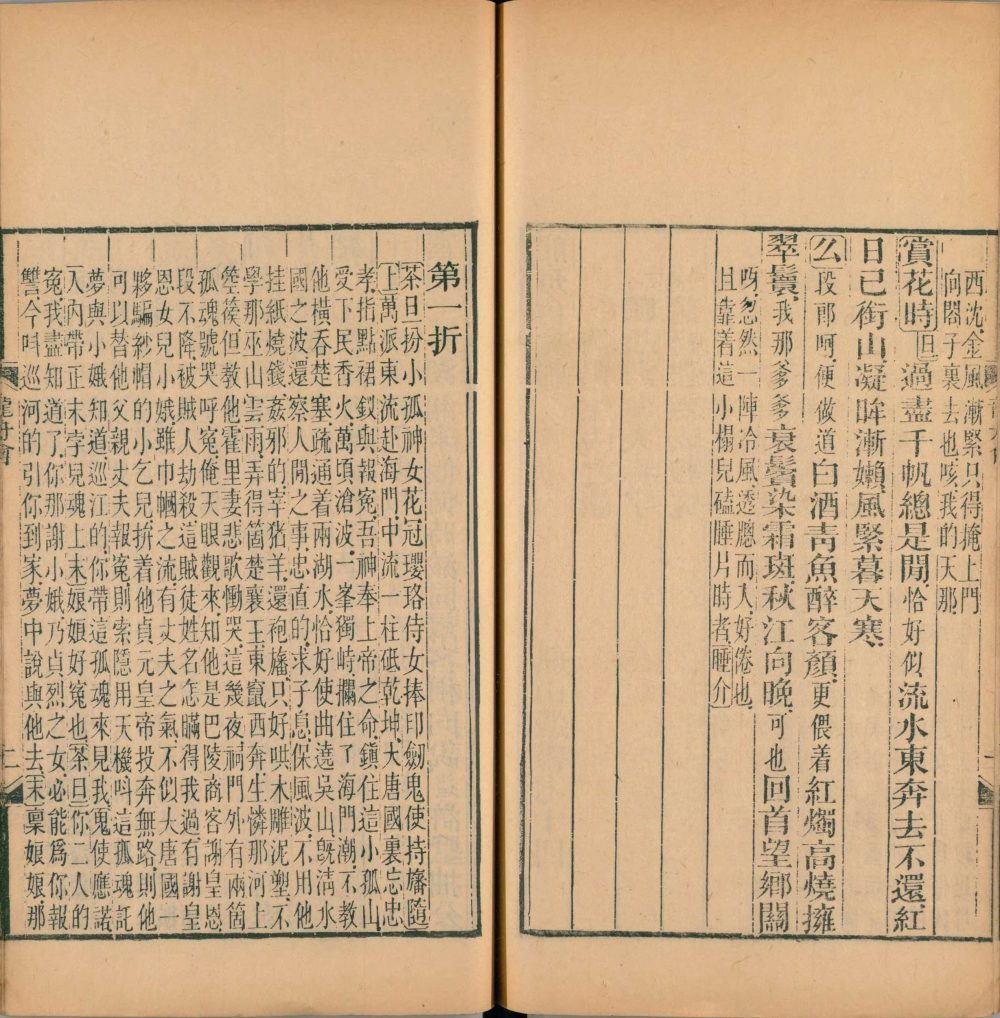 西沈金風漸緊只得掩上門
向閤子裏去也咳我的天那
賞花時旦過盡千帆總是閒恰好似流水東奔去不還紅
日已銜山凝眸漸嬾風緊暮天寒
么段郎呵便做道白酒靑魚醉客顏更偎着紅燭高燒擁
翠鬟我那爹爹哀鬢染霜斑秋江向晚可也回首望鄉關
呀忽然一陣冷風透牕而入好倦也
且靠着這小榻兒磕睡片時者睡介
第一折
茶旦扮小孤神女花冠瓔珞侍女捧印劒鬼使持旛隨
上萬派東流赴海門中流一柱砥乾坤大唐國裏忘忠
孝指點裙釵與報冤吾神奉上帝之命鎭住這小孤山
受下民香火萬頃滄波一峯獨峙攔住了海門潮不教
他橫吞楚塞疏通着兩湖水恰好使曲遶吳山旣淸水
國之波還察人閒之事忠直的求子息保風波不用他
挂紙燒錢姦邪的宰猪羊還袍旛只好哄木雕泥塑不
學那巫山雲雨弄得箇楚襄王東竄西奔生憐那河上
箜篌但教他霍里妻悲歌慟哭這幾夜祠門外有兩箇
孤魂號哭呼冤俺天眼觀來知他是巴陵商客謝皇恩
段不降被賊人劫殺這賊徒姓名怎瞞得我過有謝皇
恩女兒小娥雖巾幗之流有丈夫之氣不似大唐國一
夥騙紗帽的小乞兒拚着他貞元皇帝投奔無路則他
可以替他父親丈夫報冤則索隱用天機叫這孤魂託
夢與小娥知道巡江的你帶這孤魂來見我鬼使應諾
入內帶正末孛兒魂上末娘娘好冤也茶旦你二人的
冤我盡知道了你那謝小娥乃貞烈之女必能爲你報
讐今呌巡河的引你到家夢中說與他去末稟娘娘那
龍舟會
二